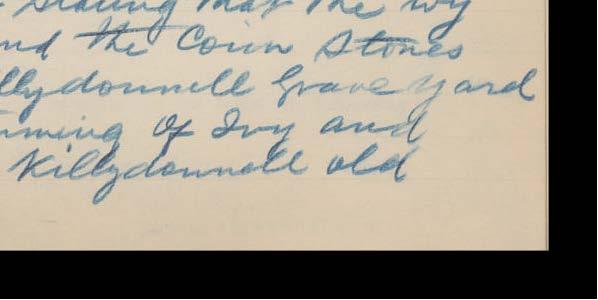 stating that the ivy
nd the Coin Stones
llydonnell Grave yard
mming of Ivy and
Killydonnell old